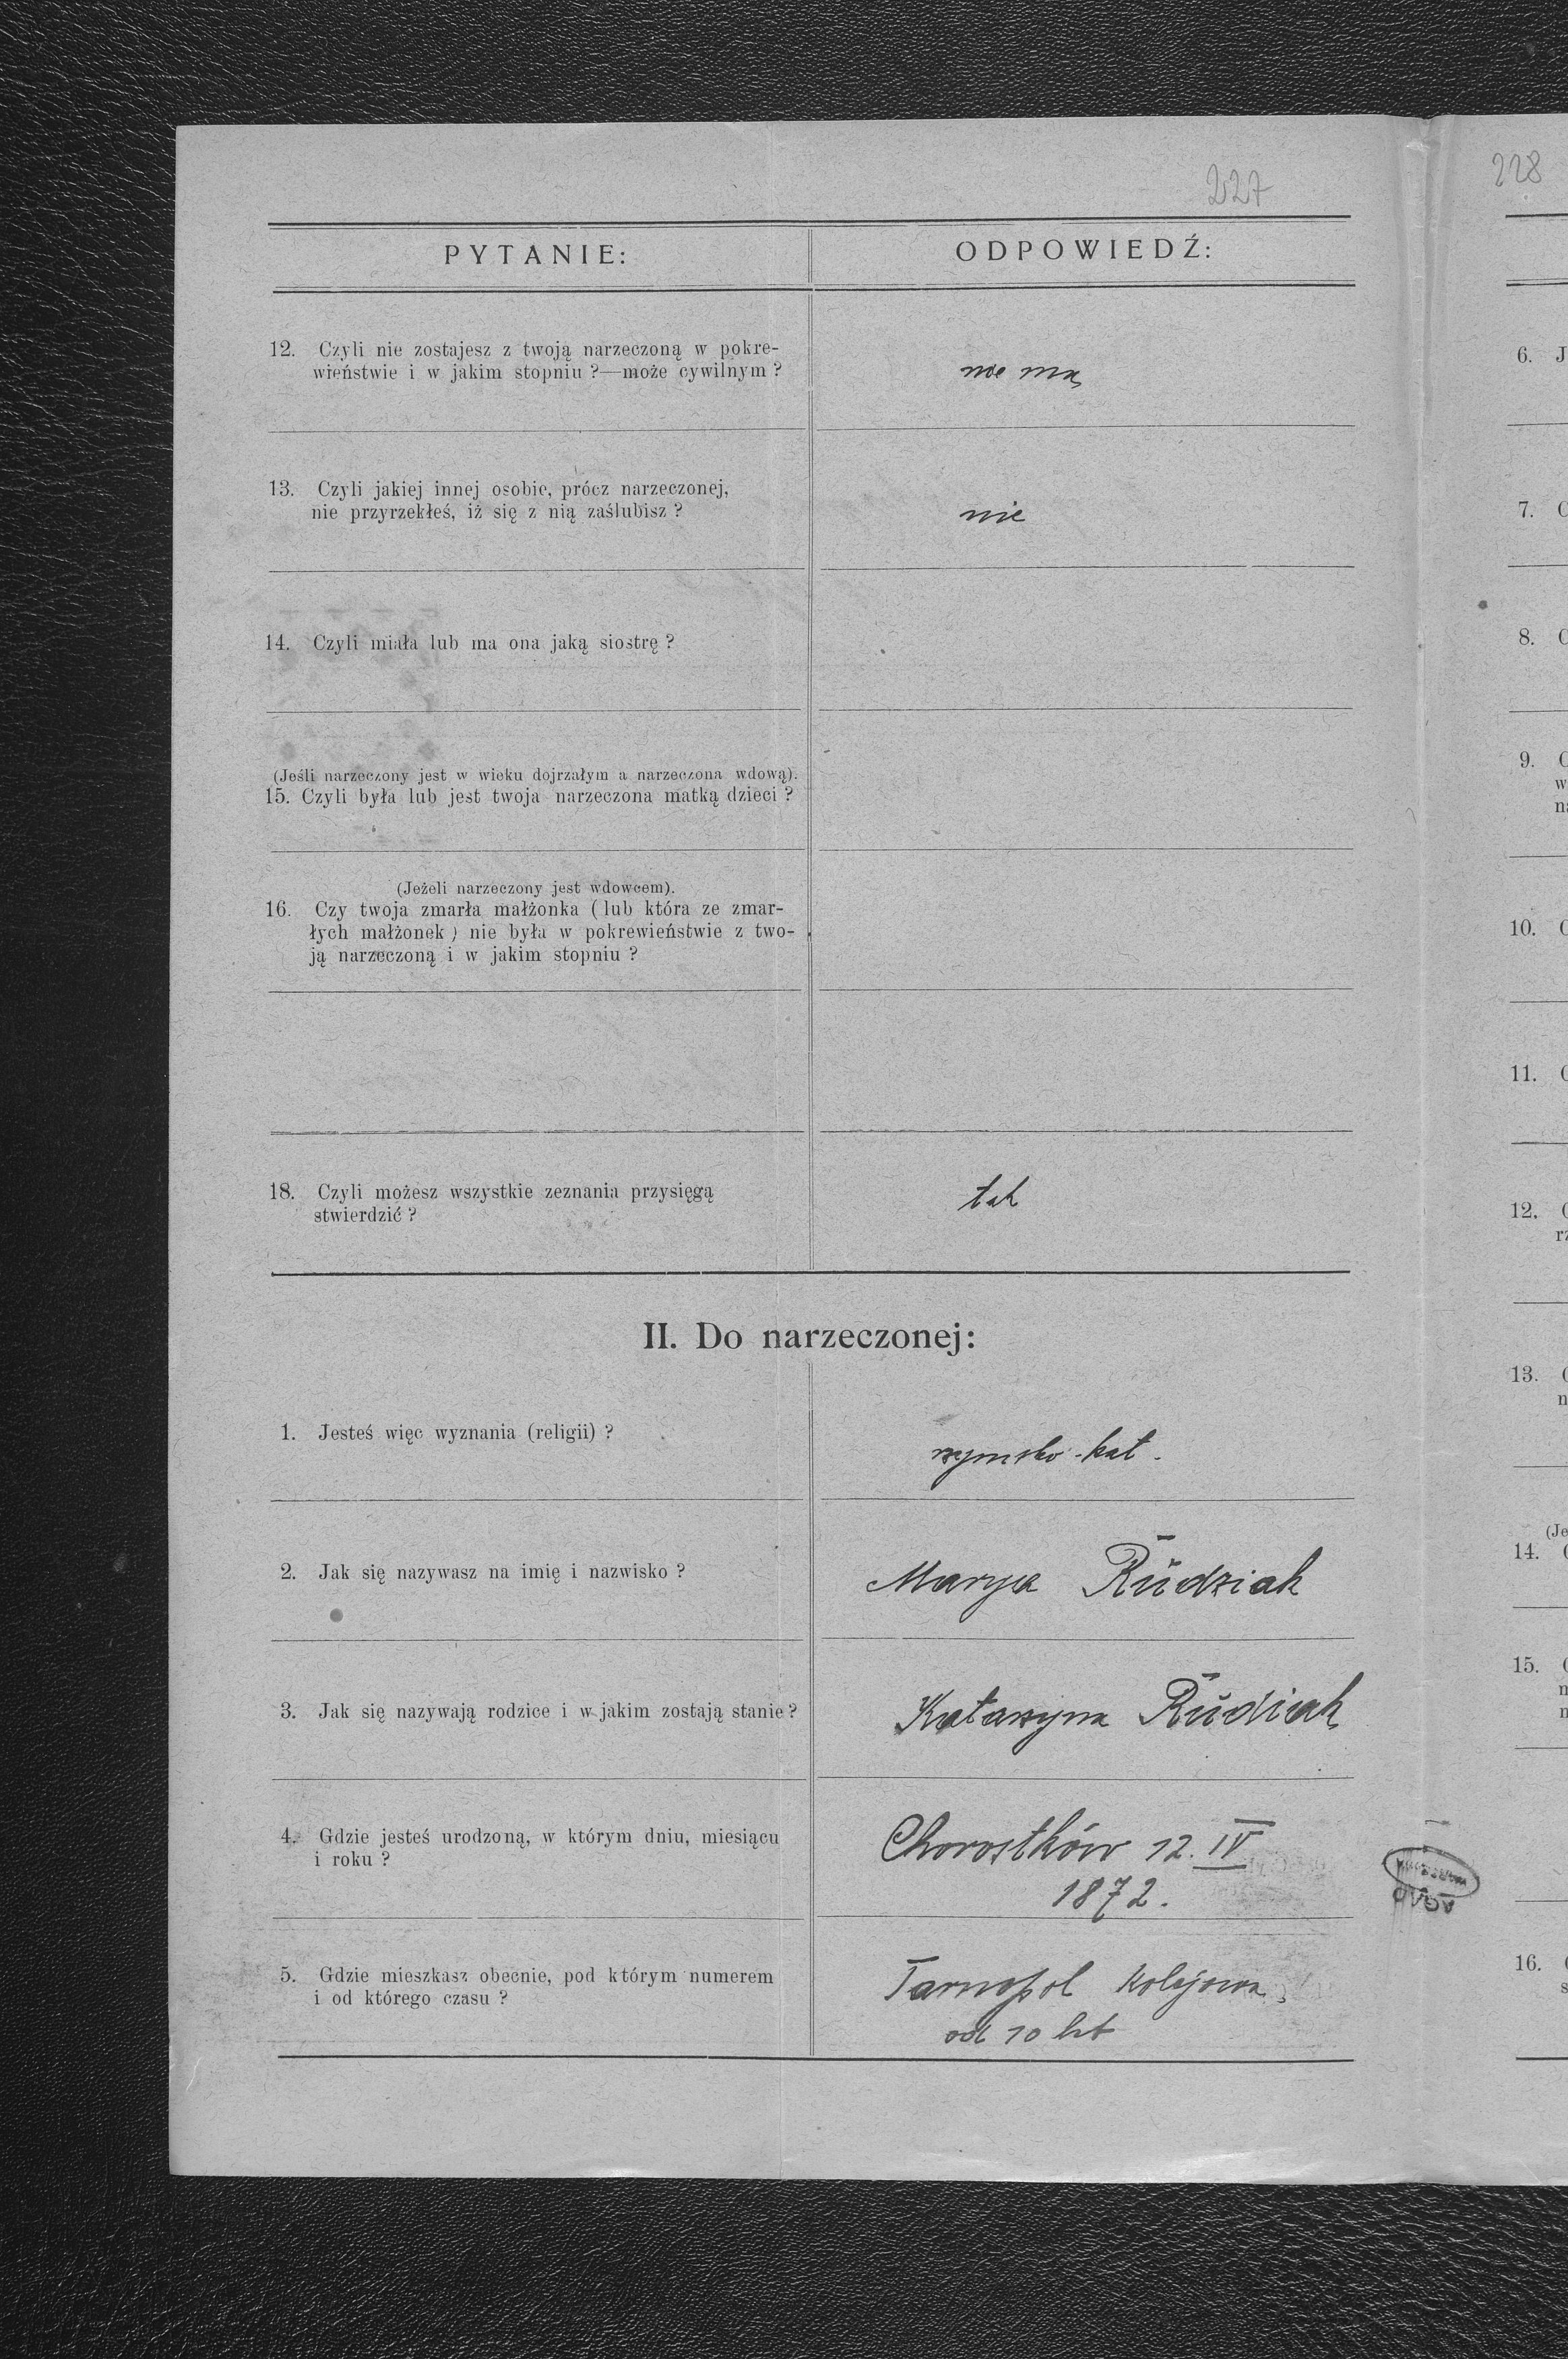 227
PYTANIE:
ODPOWIEDŹ:
12. Czyli nie zostajesz z twoją narzeczoną w pokre-
wieństwie i w jakim stopniu ?—może cywilnym ?
nie ma
13. Czyli jakiej innej osobie, prócz narzeczonej,
nie przyrzekłeś, iż się z nią zaślubisz ?
nie
14. Czyli miała lub ma ona jaką siostrę ?
(Jeśli narzeczony jest w wieku dojrzałym a narzeczona wdową).
15. Czyli była lub jest twoja narzeczona matką dzieci ?
(Jeżeli narzeczony jest wdowcem).
16. Czy twoja zmarła małżonka (lub która ze zmar-
łych małżonek) nie była w pokrewieństwie z two-
ją narzeczoną i w jakim stopniu ?
18. Czyli możesz wszystkie zeznania przysięgą
stwierdzić ?
tak
II. Do narzeczonej:
1. Jesteś więc wyznania (religii) ?
rzymsko-kat.
2. Jak się nazywasz na imię i nazwisko ?
Marya Rudziak
3. Jak się nazywają rodzice i w jakim zostają stanie ?
Katarzyna Rudziak
4. Gdzie jesteś urodzoną, w którym dniu, miesiącu
i roku ?
Chorostków 12. IV
1872.
5. Gdzie mieszkasz obecnie, pod którym numerem
i od którego czasu ?
Tarnopol Kolejowa
od 10 lat
228
6. J
7. C
8. C
9. C
w
na
10. C
11. C
12. C
rz
13. C
n
(Je
14. C
15. C
n
n
16. C
s
AGAD